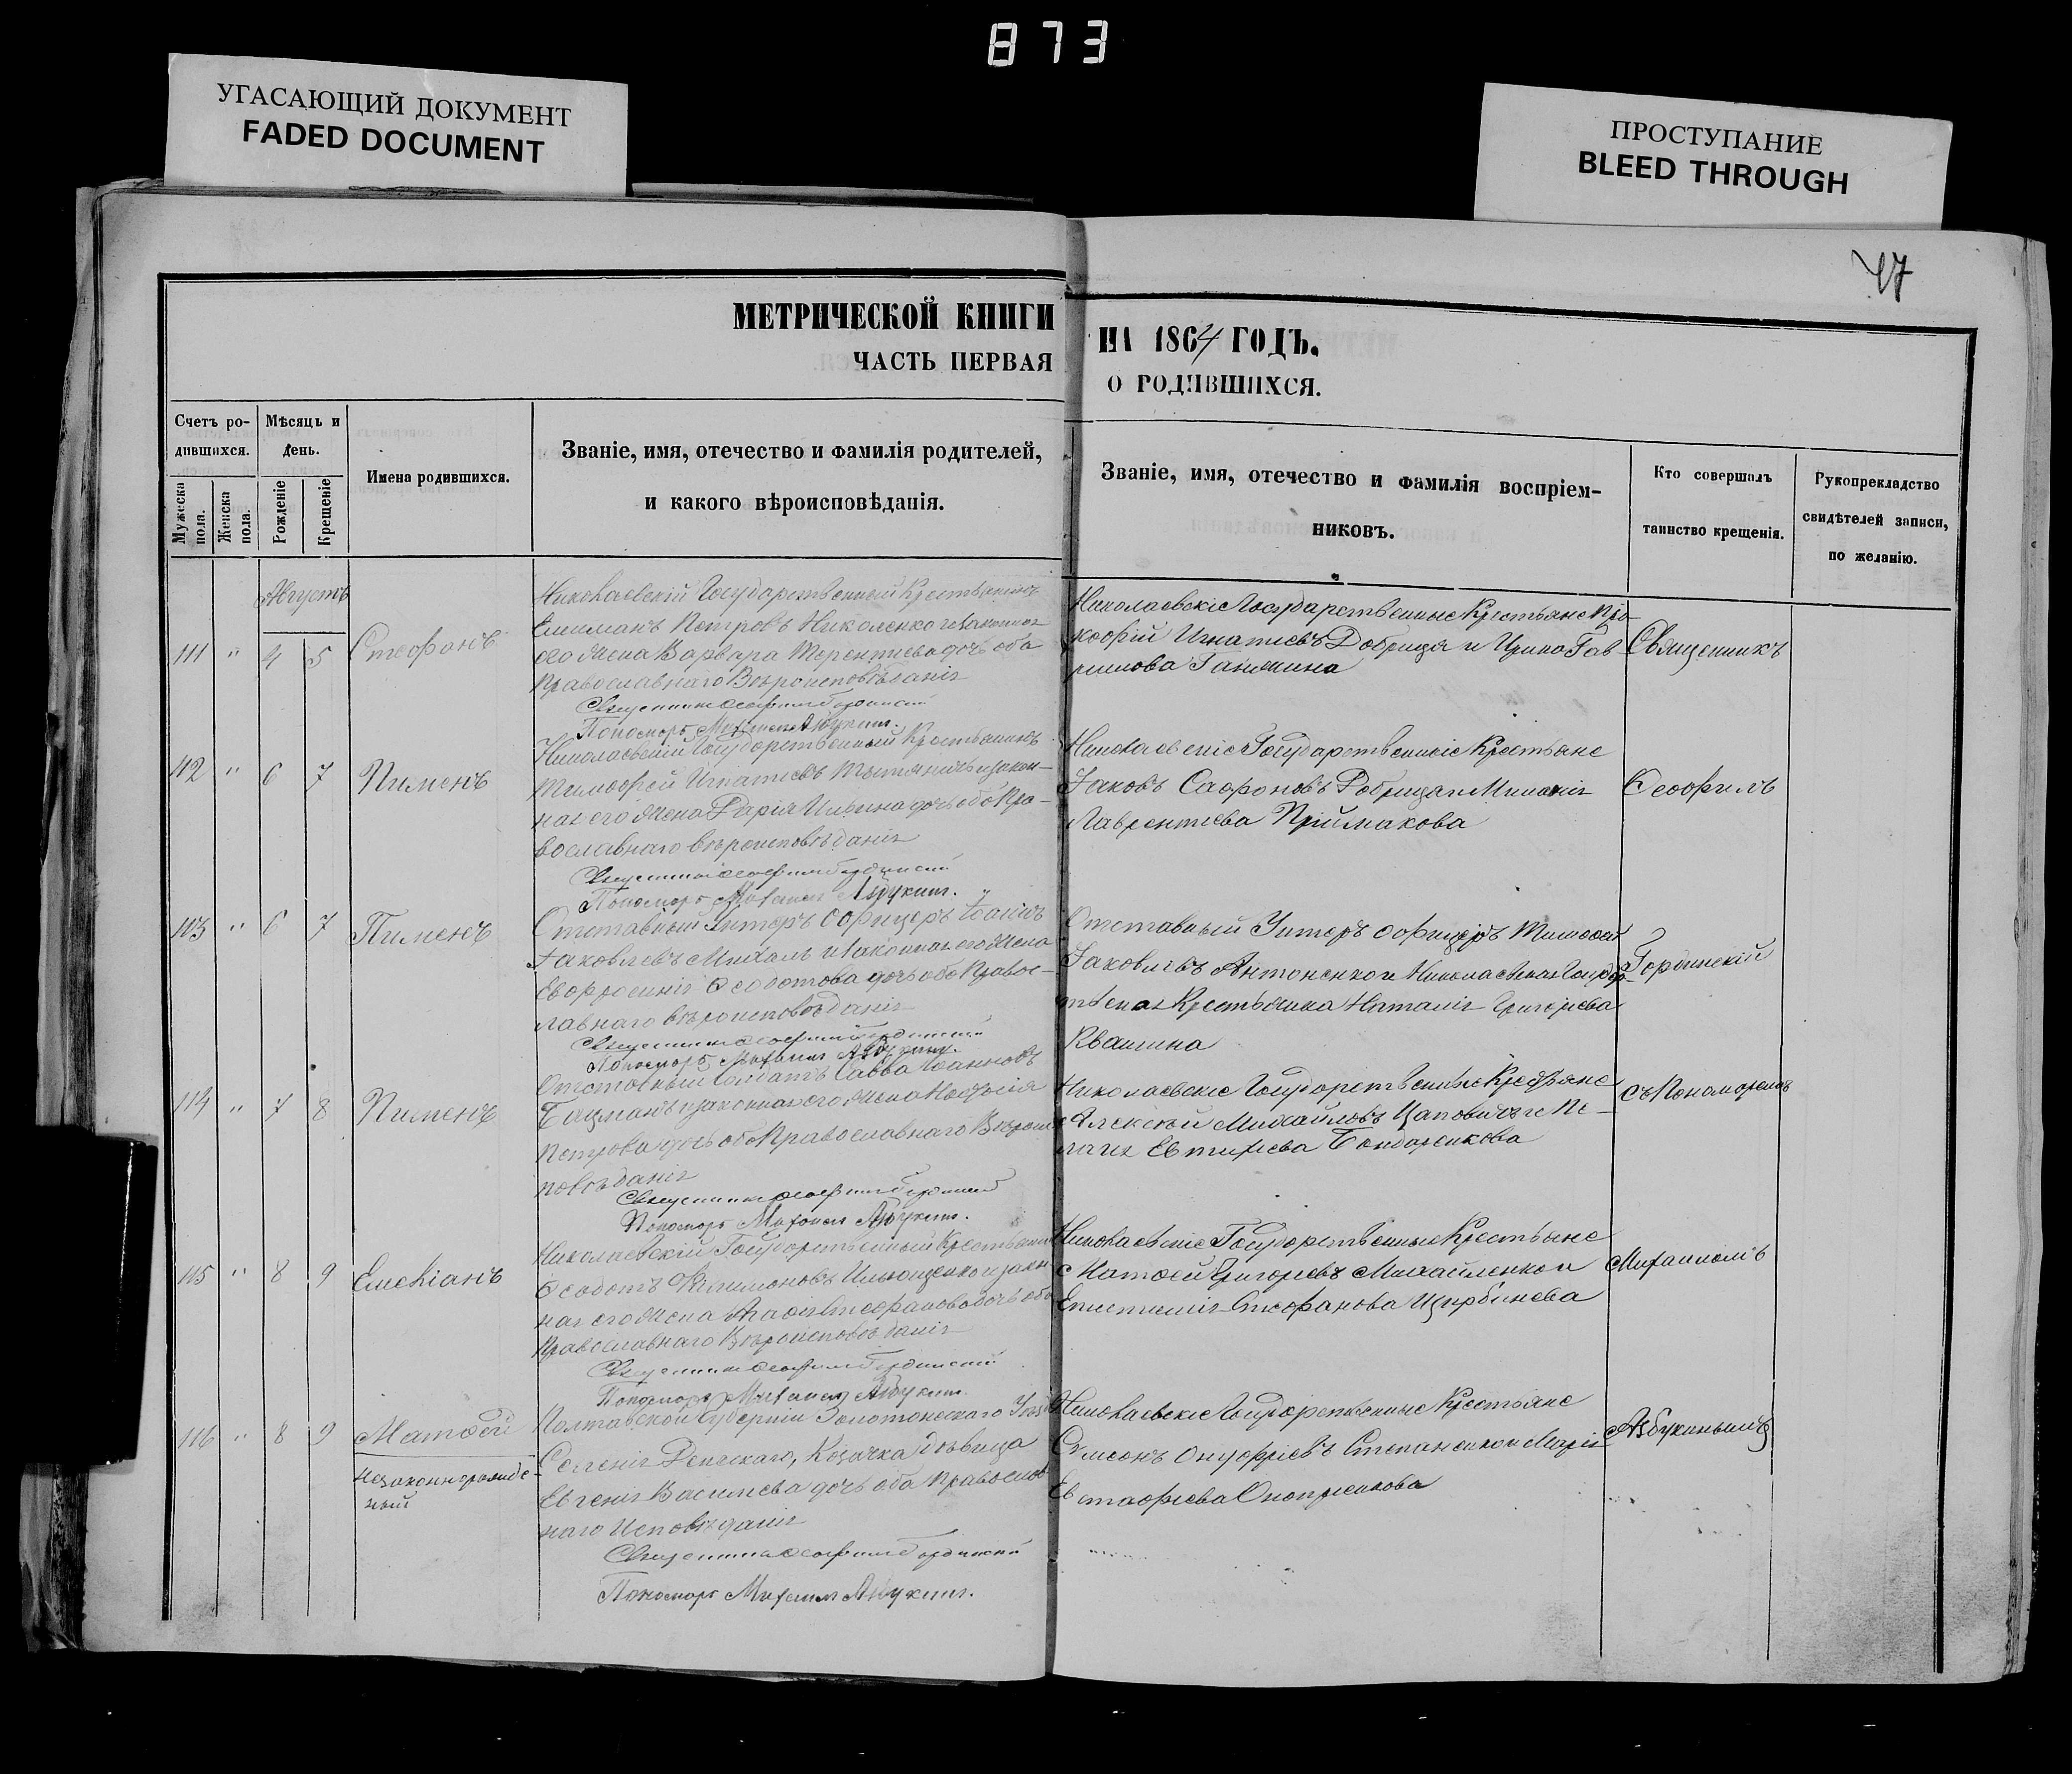 873
УГАСАЮЩИЙ ДОКУМЕНТ
FADED DOCUMENT
ПРОСТУПАНИЕ
BLEED THROUGH
47
МЕТРИЧЕСКОЙ КНИГИ НА 1864 ГОДЪ.
ЧАСТЬ ПЕРВАЯ О РОДИВШИХСЯ.
Счетъ ро-
дившихся.
Мужеска пола.
Женска пола.
Мѣсяцъ и
день.
Рожденіе
Крещеніе
Имена родившихся.
Званіе, имя, отечество и фамилія родителей,
и какого вѣроисповѣданія.
Званіе, имя, отечество и фамилія воспріем-
никовъ.
Кто совершалъ
таинство крещенія.
Рукоприкладство
свидѣтелей записи,
по желанію.
Августъ
111 " 4 5
Стефанъ
Николаевскій Государственный Крестьянинъ
Петровъ Николенко и законная
его жена Варвара Терентиева дочь оба
Православнаго Вѣроисповѣданія
Священникъ Ѳеофилъ Гординскій
Пономарь Михаилъ Азбукин.
Николаевскіе Государственные Крестьяне Про-
кофій Игнатиевъ Добрица и Ирина Гав
рилова
Священникъ
112 " 6 7
Пименъ
Николаевскій Государственный Крестьянинъ
Тимофей Игнатиевъ и закон-
ная его жена Дарія Ильина дочь оба Пра-
вославнаго вѣроисповѣданія
Священникъ Ѳеофилъ Гординскій
Пономарь Михаилъ Азбукин.
Николаевскіе Государственніе Крестьяне
Іаковъ Сафроновъ Добрица и
Лаврентиева Пріймакова
Ѳеофилъ
113 " 6 7
Пименъ
Отставный Унтеръ офицеръ Іоаннъ
Іаковлевъ и законная его жена
Евфросинія Ѳеодотова дочь оба Правос-
лавнаго вѣроисповѣданія
Священникъ Ѳеофилъ Гординскій
Пономарь Михаилъ Азбукин.
Отставный Унтеръ офицеръ Тимофей
Іаковлевъ Антоненко и Николаевская Государ-
ственая Крестьянка Наталія Григориева
Квашина
Гординскій
114 " 7 8
Пименъ
Отставный Солдатъ Савва Іоанновъ
и законная его жена
Петрова дочь оба Православнаго Вѣроис
повѣданія
Священникъ Ѳеофилъ Гординскій
Пономарь Михаилъ Азбукин.
Николаевскіе Государственные Крестьяне
Алексѣй Михайловъ Цаповичъ и Пе-
лагія Евтихиева Бондаренкова
съ Пономаремъ
115 " 8 9
Емеліанъ
Николаевскій Государственный Крестьянин
Ѳеодотъ Филимоновъ Ильющенко и закон
ная его жена Агафія Стефанова дочь оба
Православнаго Вѣроисповѣданія
Священникъ Ѳеофилъ Гординскій
Пономарь Михаилъ Азбукин.
Николаевскіе Государственные Крестьяне
Матфей Григориевъ Михайленко и
Епистимія Стефанова Щербинева
Михаиломъ
116 " 8 9
Матфей
незаконнорожде-
ный
Полтавской Губерніи Золотоноскаго Уѣзда
Козачка дѣвица
Евгенія Василиева дочь оба Православ
наго Исповѣданія
Священникъ Ѳеофилъ Гординскій
Пономарь Михаилъ Азбукин.
Николаевскіе Государственные Крестьяне
Симеонъ Онуфріевъ Степаненко и Марія
Евстафиева Оноприенкова
Азбукинымъ